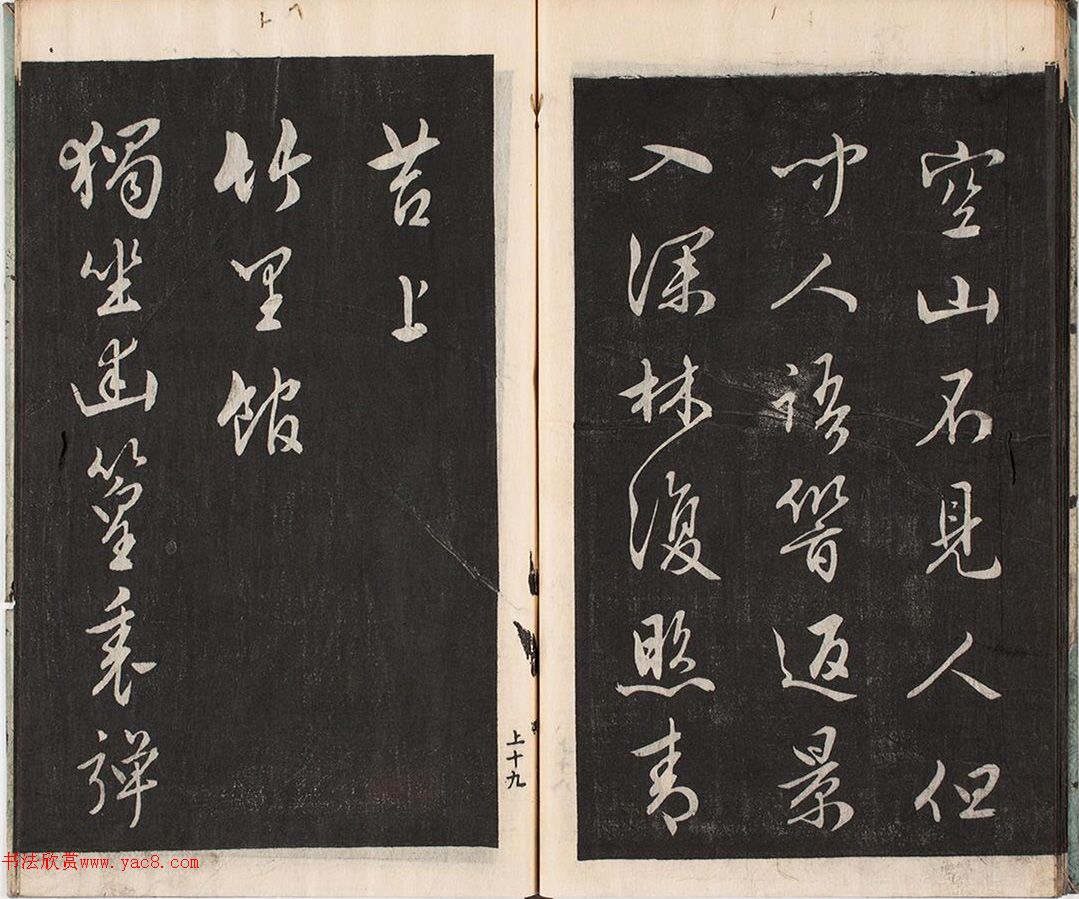 空山不見人但
聞人語響返景
入深林復照青
苔上
竹里館
獨坐幽篁裏彈
上十九
书法欣赏www.yac8.com